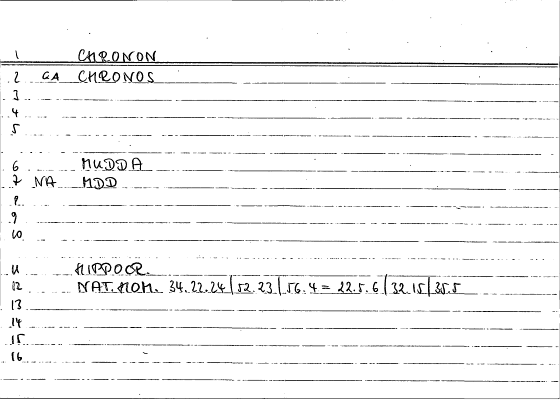 1 CHRONON
2 GA CHRONOS
3
4
5
6 MUDDA
7 NA MDD
8
9
10
11 HIPPOCR.
12 NAT. HOM. 34.22.24 | 52.23 | 56.4 = 22.5.6 | 32.15 | 35.5
13
14
15
16